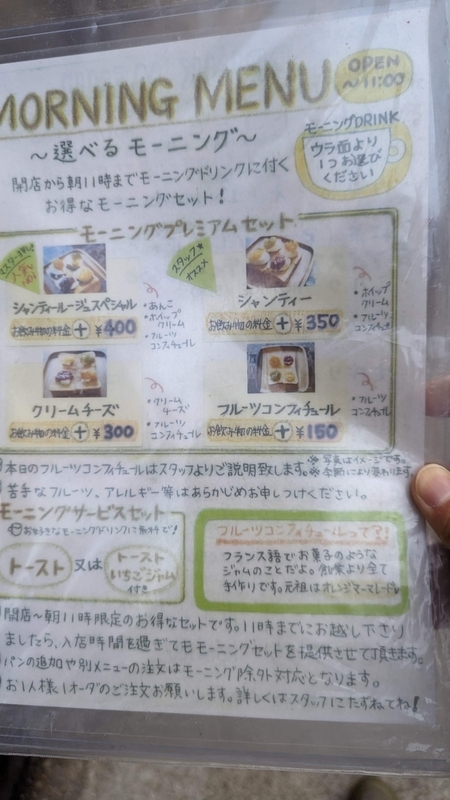 MORNING MENU
OPEN
～11:00
～選べるモーニング～
開店から朝11時までモーニングドリンクに付く
お得なモーニングセット！
モーニングDRINK
ウラ面より
1つお選び
ください
モーニングプレミアムセット
シャンティールージュスペシャル
お飲み物の料金＋¥400
・あんこ
・ホイップ
クリーム
・フルーツ
コンフィチュール
スタッフ★
オススメ
シャンティー
お飲み物の料金＋¥350
・ホイップ
クリーム
・フルーツ
コンフィチュール
クリームチーズ
お飲み物の料金＋¥300
・クリーム
チーズ
・フルーツ
コンフィチュール
フルーツコンフィチュール
お飲み物の料金＋¥150
・フルーツ
コンフィチュール
※写真はイメージです。
※季節により変わります。
本日のフルーツコンフィチュールはスタッフよりご説明致します。
苦手なフルーツ、アレルギー等はあらかじめお申しつけください。
モーニングサービスセット
お好きなモーニングドリンクに無料で！
トースト 又は トースト
いちごジャム
付き
フルーツコンフィチュールって？
フランス語でお菓子のような
ジャムのことだよ。創業より全て
手作りです。元祖はオレンジマーマレード
開店～朝11時限定のお得なセットです。11時までにお越し下さり
ましたら、入店時間を過ぎてもモーニングセットを提供させて頂きます。
パンの追加や別メニューの注文はモーニング除外対応となります。
お1人様1オーダのご注文お願いします。詳しくはスタッフにたずねてね！